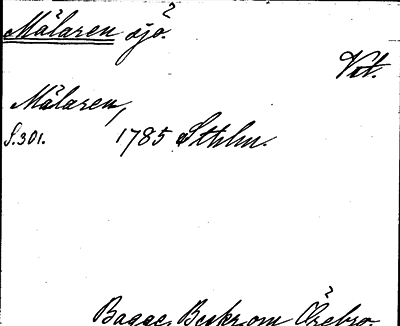 Mälaren sjö.
Vtt.
Mälaren,
S.301. 1785 Sthlm.
Bagge, Beskr. om Örebro